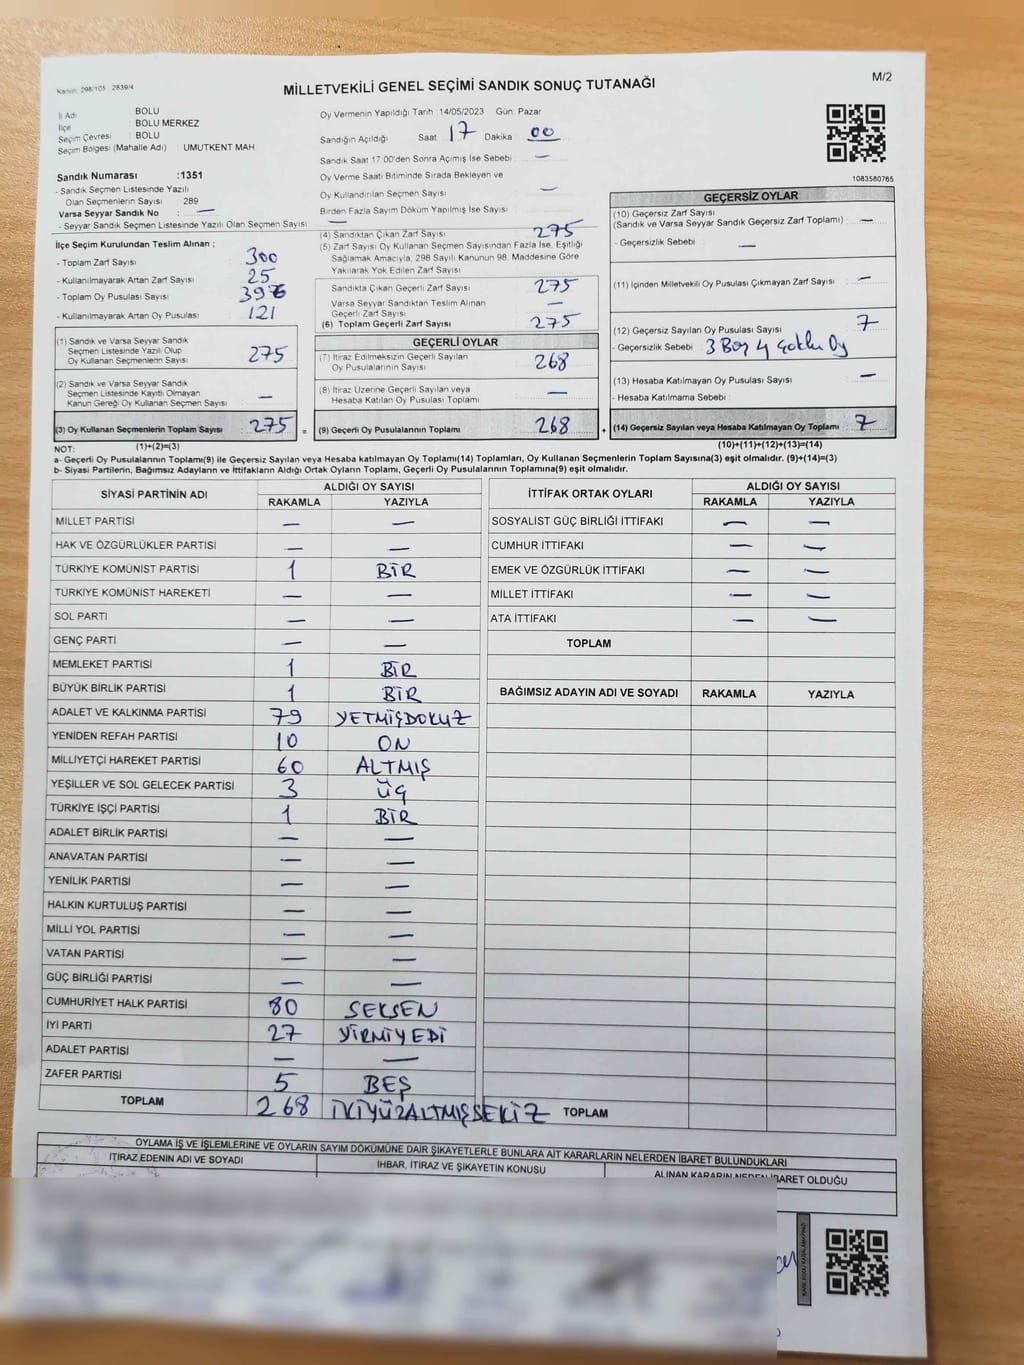 Kanun: 298/105 - 2839/4
MİLLETVEKİLİ GENEL SEÇİMİ SANDIK SONUÇ TUTANAĞI
M/2
İl Adı : BOLU
İlçe : BOLU MERKEZ
Seçim Çevresi : BOLU
Seçim Bölgesi (Mahalle Adı) : UMUTKENT MAH
Oy Vermenin Yapıldığı Tarih : 14/05/2023 Gün: Pazar
Sandığın Açıldığı Saat 17 Dakika 00
Sandık Saat 17:00'den Sonra Açımış İse Sebebi : —
Oy Verme Saati Bitiminde Sırada Bekleyen ve
Oy Kullandırılan Seçmen Sayısı : —
Birden Fazla Sayım Döküm Yapılmış İse Sayısı : —
1083580765
Sandık Numarası :1351
- Sandık Seçmen Listesinde Yazılı
Olan Seçmenlerin Sayısı : 289
Varsa Seyyar Sandık No : —
- Seyyar Sandık Seçmen Listesinde Yazılı Olan Seçmen Sayısı :
İlçe Seçim Kurulundan Teslim Alınan ;
- Toplam Zarf Sayısı : 300
- Kullanılmayarak Artan Zarf Sayısı : 25
- Toplam Oy Pusulası Sayısı : 396
- Kullanılmayarak Artan Oy Pusulası : 121
(1) Sandık ve Varsa Seyyar Sandık
Seçmen Listesinde Yazılı Olup
Oy Kullanan Seçmenlerin Sayısı : 275
(2) Sandık ve Varsa Seyyar Sandık
Seçmen Listesinde Kayıtlı Olmayan
Kanun Gereği Oy Kullanan Seçmen Sayısı : —
(3) Oy Kullanan Seçmenlerin Toplam Sayısı : 275 =
(1)+(2)=(3)
(4) Sandıktan Çıkan Zarf Sayısı : 275
(5) Zarf Sayısı Oy Kullanan Seçmen Sayısından Fazla İse, Eşitliği
Sağlamak Amacıyla, 298 Sayılı Kanunun 98. Maddesine Göre
Yakılarak Yok Edilen Zarf Sayısı :
Sandıkta Çıkan Geçerli Zarf Sayısı : 275
Varsa Seyyar Sandıktan Teslim Alınan
Geçerli Zarf Sayısı : —
(6) Toplam Geçerli Zarf Sayısı : 275
GEÇERLİ OYLAR
(7) İtiraz Edilmeksizin Geçerli Sayılan
Oy Pusulalarının Sayısı : 268
(8) İtiraz Üzerine Geçerli Sayılan veya
Hesaba Katılan Oy Pusulası Toplamı : —
(9) Geçerli Oy Pusulalarının Toplamı : 268 +
GEÇERSİZ OYLAR
(10) Geçersiz Zarf Sayısı
(Sandık ve Varsa Seyyar Sandık Geçersiz Zarf Toplamı) : —
- Geçersizlik Sebebi : —
(11) İçinden Milletvekili Oy Pusulası Çıkmayan Zarf Sayısı : —
(12) Geçersiz Sayılan Oy Pusulası Sayısı : 7
- Geçersizlik Sebebi : 3 Boş 4 Çoklu Oy
(13) Hesaba Katılmayan Oy Pusulası Sayısı : —
- Hesaba Katılmama Sebebi :
(14) Geçersiz Sayılan veya Hesaba Katılmayan Oy Toplamı : 7
(10)+(11)+(12)+(13)=(14)
NOT:
a- Geçerli Oy Pusulalarının Toplamı(9) ile Geçersiz Sayılan veya Hesaba katılmayan Oy Toplamı(14) Toplamları, Oy Kullanan Seçmenlerin Toplam Sayısına(3) eşit olmalıdır. (9)+(14)=(3)
b- Siyasi Partilerin, Bağımsız Adayların ve İttifakların Aldığı Ortak Oyların Toplamı, Geçerli Oy Pusulalarının Toplamına(9) eşit olmalıdır.
SİYASİ PARTİNİN ADI ALDIĞI OY SAYISI
RAKAMLA YAZIYLA
MİLLET PARTİSİ — —
HAK VE ÖZGÜRLÜKLER PARTİSİ — —
TÜRKİYE KOMÜNİST PARTİSİ 1 BİR
TÜRKİYE KOMÜNİST HAREKETİ — —
SOL PARTİ — —
GENÇ PARTİ — —
MEMLEKET PARTİSİ 1 BİR
BÜYÜK BİRLİK PARTİSİ 1 BİR
ADALET VE KALKINMA PARTİSİ 79 YETMİŞDOKUZ
YENİDEN REFAH PARTİSİ 10 ON
MİLLİYETÇİ HAREKET PARTİSİ 60 ALTMIŞ
YEŞİLLER VE SOL GELECEK PARTİSİ 3 ÜÇ
TÜRKİYE İŞÇİ PARTİSİ 1 BİR
ADALET BİRLİK PARTİSİ — —
ANAVATAN PARTİSİ — —
YENİLİK PARTİSİ — —
HALKIN KURTULUŞ PARTİSİ — —
MİLLİ YOL PARTİSİ — —
VATAN PARTİSİ — —
GÜÇ BİRLİĞİ PARTİSİ — —
CUMHURİYET HALK PARTİSİ 80 SEKSEN
İYİ PARTİ 27 YİRMİYEDİ
ADALET PARTİSİ — —
ZAFER PARTİSİ 5 BEŞ
TOPLAM 268 İKİYÜZALTMIŞSEKİZ
İTTİFAK ORTAK OYLARI ALDIĞI OY SAYISI
RAKAMLA YAZIYLA
SOSYALİST GÜÇ BİRLİĞİ İTTİFAKI — —
CUMHUR İTTİFAKI — —
EMEK VE ÖZGÜRLÜK İTTİFAKI — —
MİLLET İTTİFAKI — —
ATA İTTİFAKI — —
TOPLAM
BAĞIMSIZ ADAYIN ADI VE SOYADI RAKAMLA YAZIYLA
TOPLAM
OYLAMA İŞ VE İŞLEMLERİNE VE OYLARIN SAYIM DÖKÜMÜNE DAİR ŞİKAYETLERLE BUNLARA AİT KARARLARIN NELERDEN İBARET BULUNDUKLARI
İTİRAZ EDENİN ADI VE SOYADI İHBAR, İTİRAZ VE ŞİKAYETİN KONUSU ALINAN KARARIN NEDEN İBARET OLDUĞU